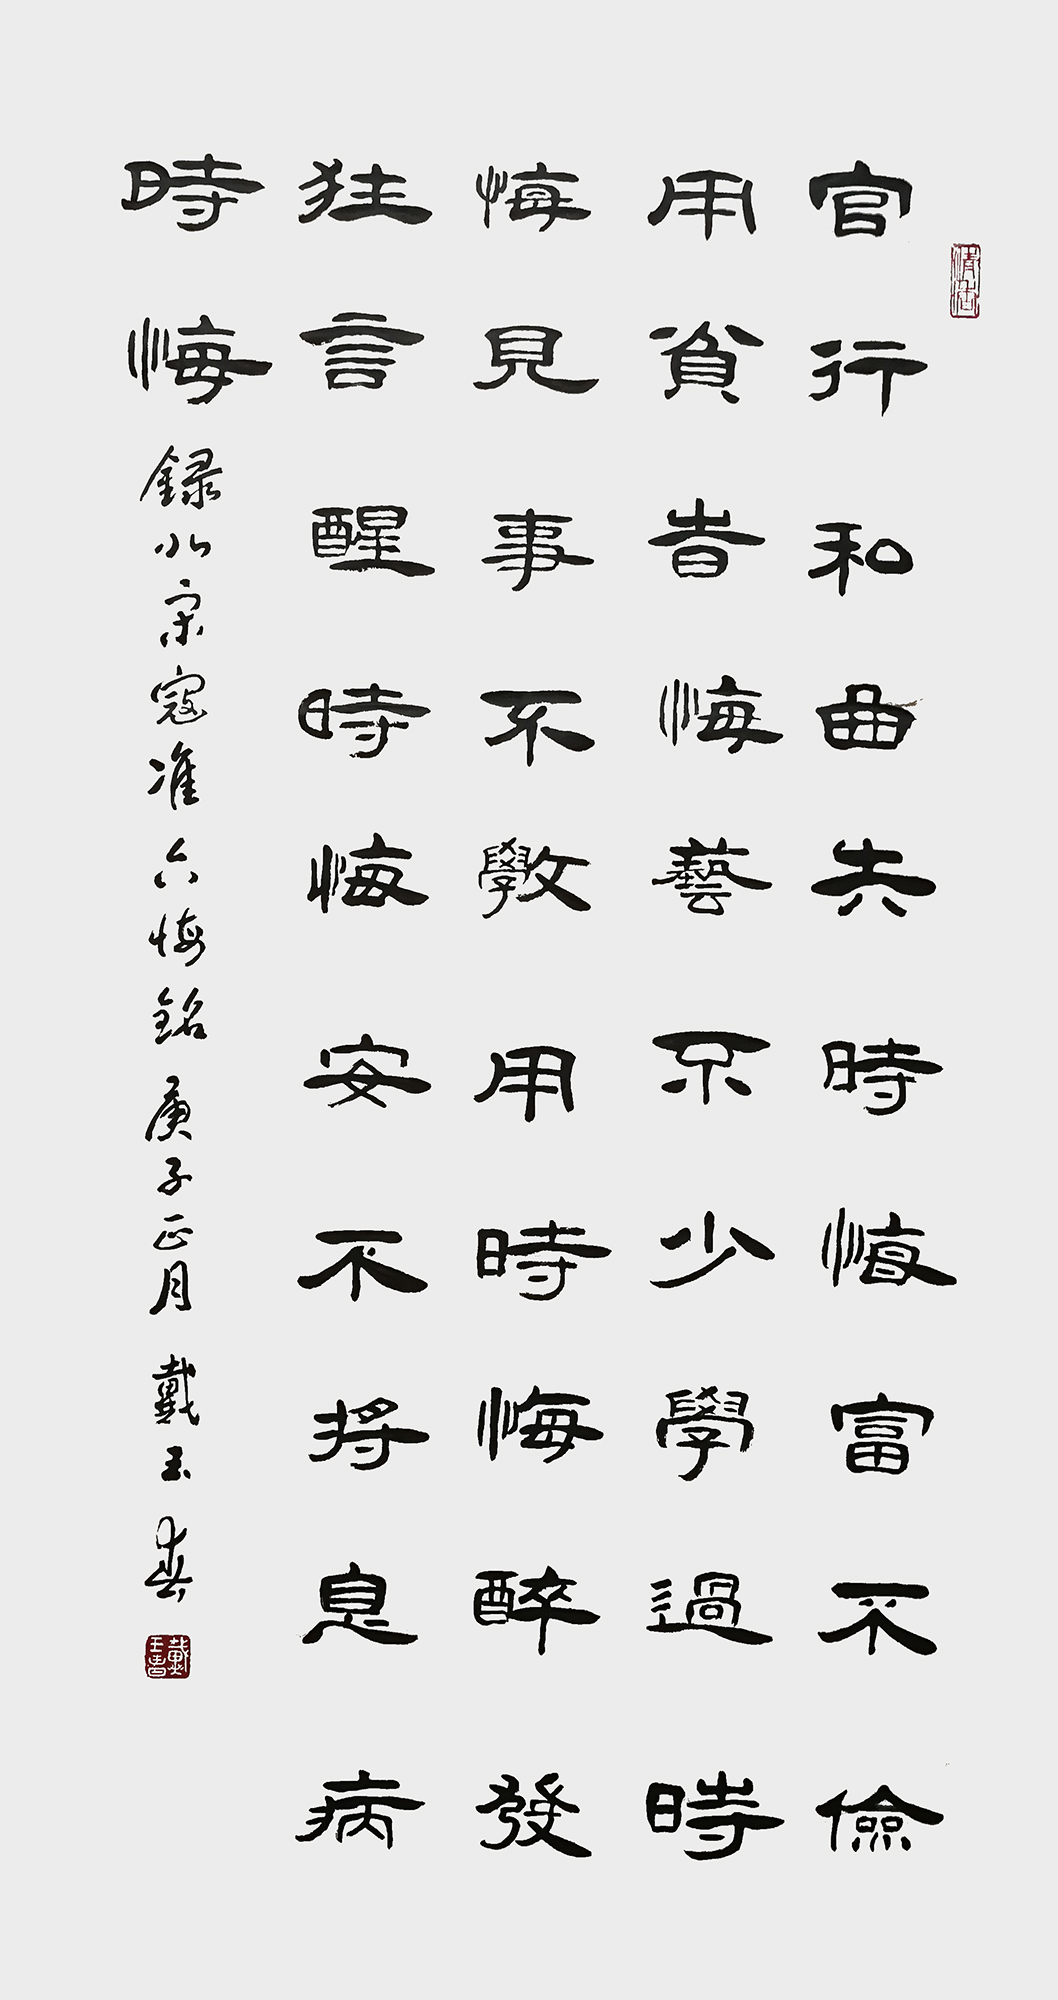 官行和曲失時悔富不儉
用貧旹悔藝不少學過時
悔見事不斆用時悔醉發
狂言醒時悔安不將息病
時悔 録北宋寇准六悔銘 庚子正月 戴玉春